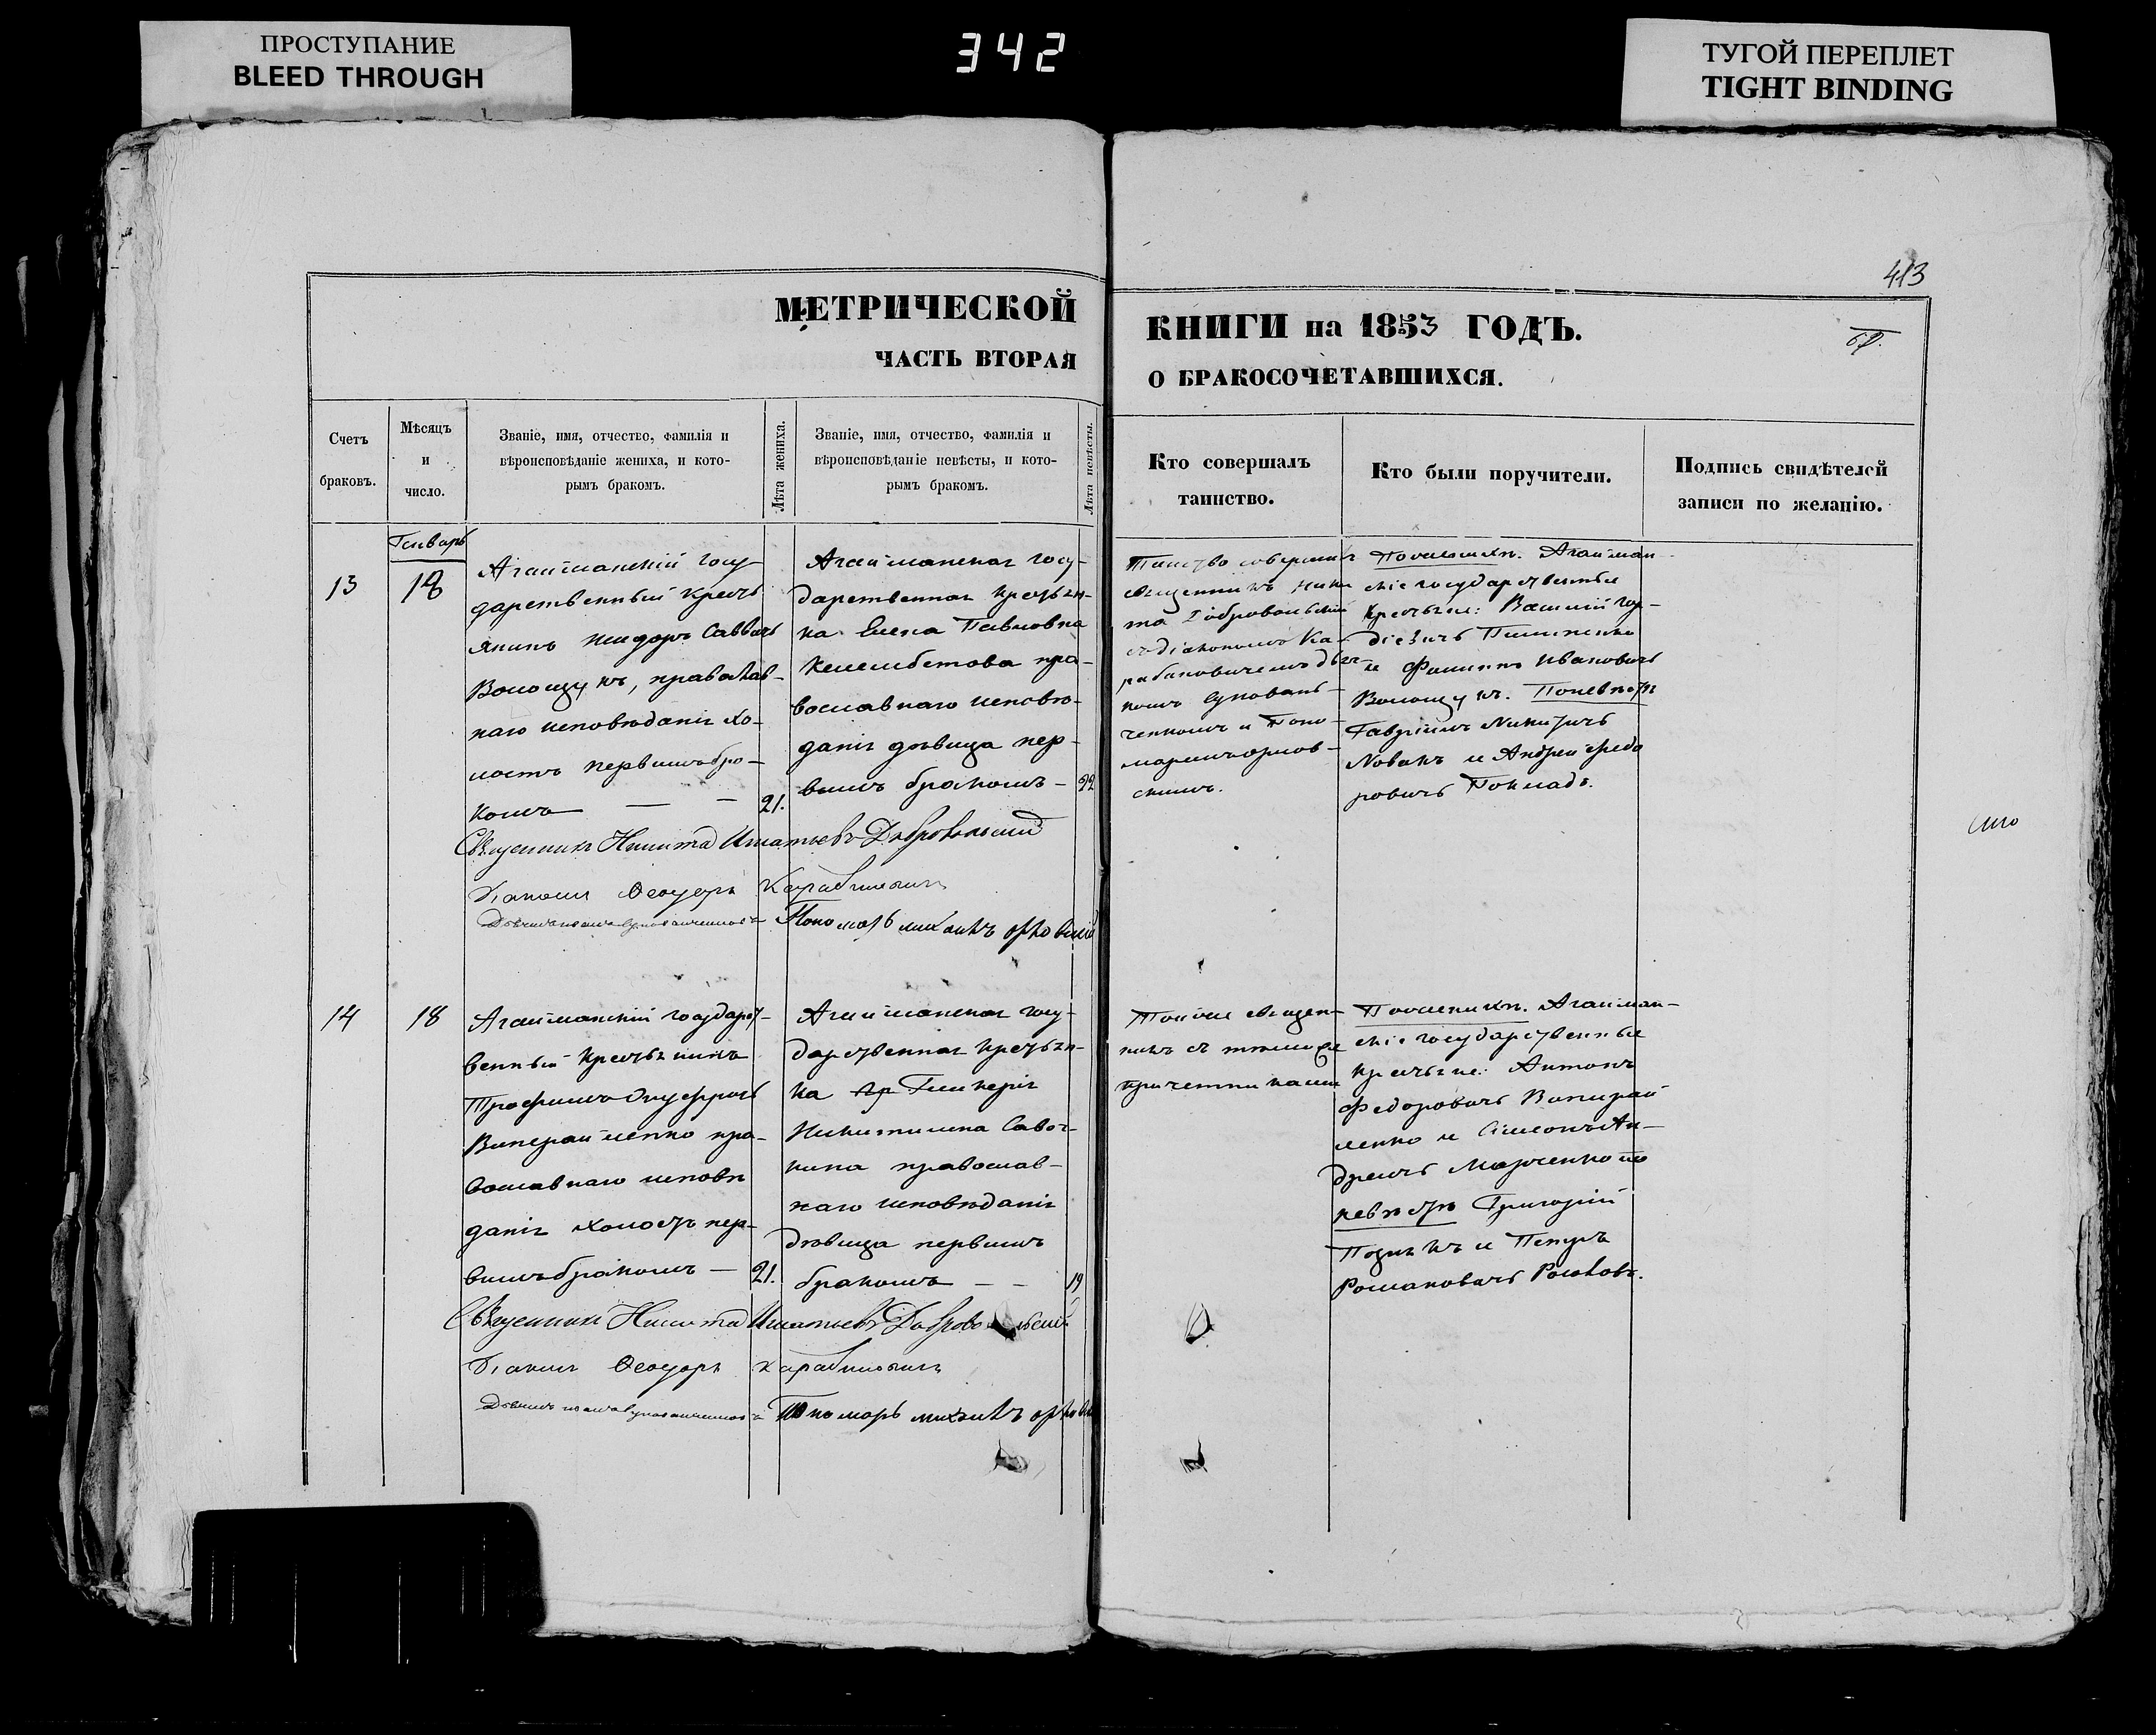 ПРОСТУПАНИЕ
BLEED THROUGH
342
ТУГОЙ ПЕРЕПЛЕТ
TIGHT BINDING
413
МЕТРИЧЕСКОЙ
ЧАСТЬ ВТОРАЯ
КНИГИ на 1853 ГОДЪ.
О БРАКОСОЧЕТАВШИХСЯ.
Счетъ
браковъ.
Мѣсяцъ
и
число.
Званіе, имя, отчество, фамилія и
вѣроисповѣданіе жениха, и кото-
рымъ бракомъ.
Лѣта жениха.
Званіе, имя, отчество, фамилія и
вѣроисповѣданіе невѣсты, и кото-
рымъ бракомъ.
Лѣта невѣсты.
Кто совершалъ
таинство.
Кто были поручители.
Подпись свидѣтелей
записи по желанію.
Генварь
13
18
Агайманскій госу-
дарственный кресть
янинъ Исидоръ Саввичъ
Волощукъ, православ-
наго исповѣданія хо-
лостъ первымъ бра-
комъ
21.
Агайманская госу-
дарственная крестьян-
ка Елена Павловна
Келембетова пра-
вославнаго исповѣ-
данія дѣвица пер-
вымъ бракомъ
22
Таинство совершилъ
священникъ Ники
та Добровольскій
съ діакономъ Ка-
рабиновичемъ дьяч-
комъ
и Поно-
маремъ Орлов-
скимъ.
По женихѣ. Агайман-
скіе государственные
крестьяне: Василій Гор-
діевичъ Пилипенко
и Филиппъ Ивановичъ
Волощукъ. По невѣстѣ
Гавріилъ Никитичъ
Новакъ и Андрей Федо
ровичъ Покладъ.
Священникъ Никита Игнатьевъ Добровольскій
Діаконъ Ѳеодоръ Карабиновичъ
Пономарь Михаилъ Орловскій
14
18
Агайманскій государст-
венный крестьянинъ
Трофимъ Онуфричъ
пра-
вославнаго исповѣ
данія холостъ пер-
вымъ бракомъ
21.
Агайманская госу-
дарственная крестьян-
ка Гликерія
Никитишна Савоч-
кина православ-
наго исповѣданія
дѣвица первымъ
бракомъ
19
Тотъ же священ-
никъ съ тѣми же
причетниками
По женихѣ. Агайман-
скіе государственные
крестьяне: Антонъ
Федоровичъ
ленко и Симеонъ Ан-
дреичъ Марченко по
невѣстѣ Григорій
и Петръ
Романовичъ
Священникъ Никита Игнатьевъ Добровольскій
Діаконъ Ѳеодоръ Карабиновичъ
Пономарь Михаилъ